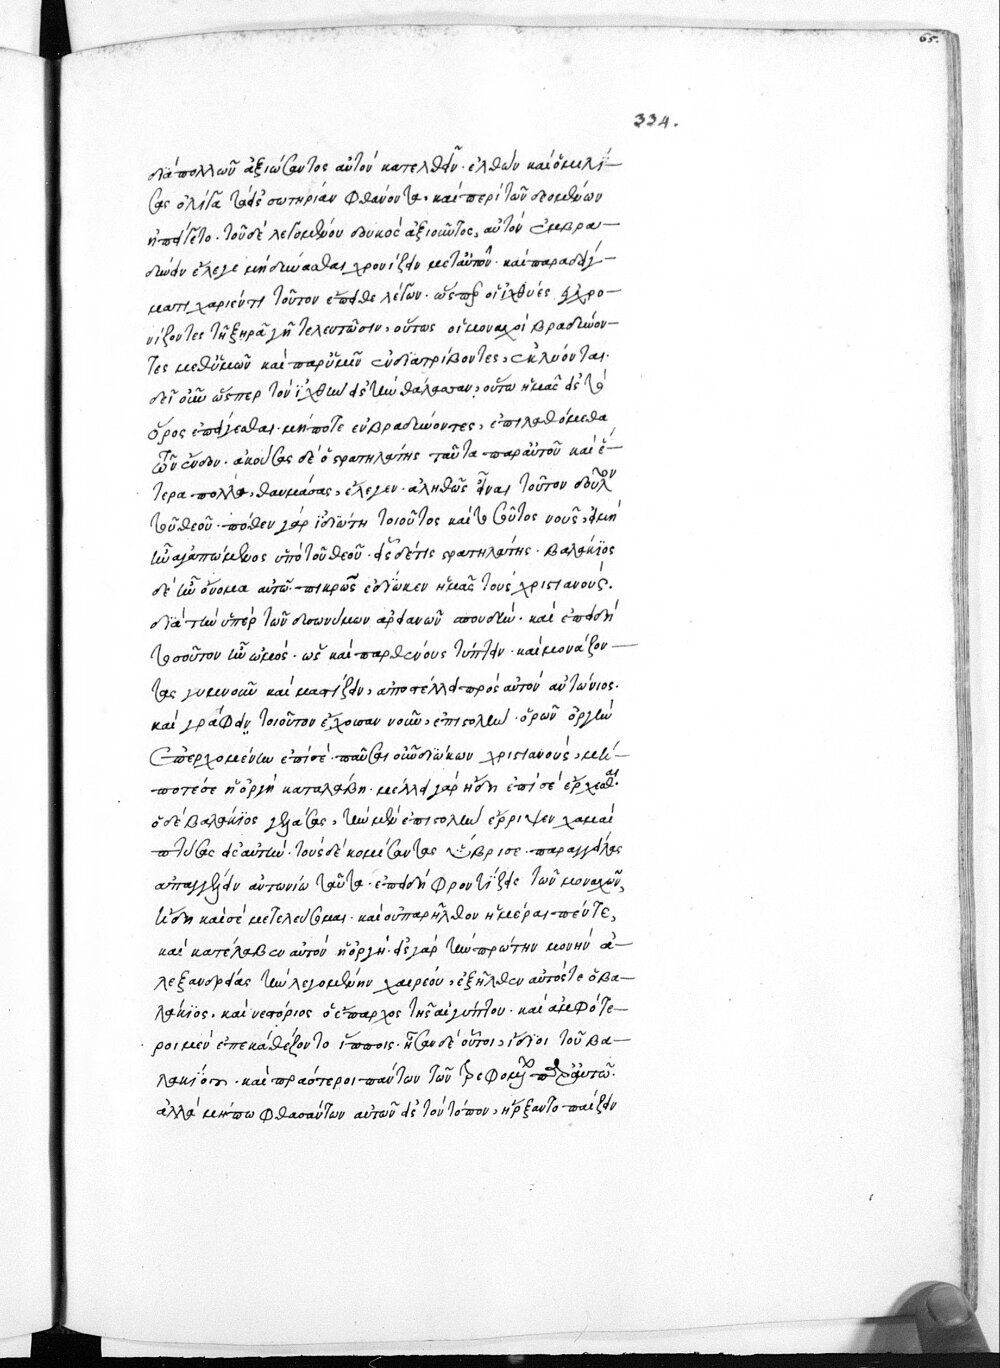 65.
334.
διὰ πολλῶν ἀξιώσαντος αὐτὸν κατελθεῖν. ἐλθὼν καὶ ὁμιλή-
σας ὀλίγα τὰ εἰς σωτηρίαν φθάνοντα, καὶ περὶ τῶν δεομένων
ἠπείγετο. τοῦ δὲ λεγομένου δουκὸς ἀξιοῦντος, αὐτὸν ἐμβρα-
δύνειν ἔλεγε μὴ δύνασθαι χρονίζειν μετ' αὐτῶν. καὶ παραδείγ-
ματι χαρίεντι τοῦτον ἔπειθε λέγων. ὥσπερ οἱ ἰχθύες ἐγχρο-
νίζοντες τῇ ξηρᾷ γῇ τελευτῶσιν, οὕτως οἱ μοναχοὶ βραδύνον-
τες μεθ' ὑμῶν καὶ παρ' ὑμῖν ἐνδιατρίβοντες, ἐκλύονται.
δεῖ οὖν ὥσπερ τὸν ἰχθὺν εἰς τὴν θάλασσαν, οὕτω ἡμᾶς εἰς τὸ
ὄρος ἐπείγεσθαι. μήποτε ἐμβραδύνοντες, ἐπιλαθόμεθα
τῶν ἔνδον. ἀκούσας δὲ ὁ στρατηλάτης ταῦτα παρ' αὐτοῦ καὶ ἕ-
τερα πολλὰ, θαυμάσας, ἔλεγεν. ἀληθῶς εἶναι τοῦτον δοῦλον
τοῦ θεοῦ. πόθεν γὰρ ἰδιώτῃ τοιοῦτος καὶ τοσοῦτος νοῦς, εἰ μὴ
ἦν ἀγαπώμενος ὑπὸ τοῦ θεοῦ. εἷς δέ τις στρατηλάτης. βαλάκιος
δὲ ἦν ὄνομα αὐτῷ. πικρῶς ἐδίωκεν ἡμᾶς τοὺς χριστιανούς.
διὰ τὴν ὑπὲρ τῶν δυσωνύμων ἀρειανῶν σπουδήν. καὶ ἐπειδὴ
τοσοῦτον ἦν ὠμὸς. ὡς καὶ παρθένους τύπτειν. καὶ μονάζον-
τας γυμνοῦν καὶ μαστίζειν, ἀποστέλλει πρὸς αὐτὸν ἀντώνιος.
καὶ γράφει τοιοῦτον ἔχουσαν νοῦν, ἐπιστολὴν. ὁρῶν ὀργὴν
ἐπερχομένην ἐπὶ σέ. παῦσαι οὖν διώκων χριστιανοὺς, μή-
ποτέ σε ἡ ὀργὴ καταλάβῃ. μέλλει γὰρ ἤδη ἐπὶ σὲ ἔρχεσθαι.
ὁ δὲ βαλάκιος γελάσας, τὴν μὲν ἐπιστολὴν ἔρριψεν χαμαὶ
πτύσας εἰς αὐτήν. τοὺς δὲ κομίσαντας ὕβρισε. παραγγείλας
ἀπαγγεῖλαι ἀντωνίῳ ταῦτα. ἐπειδὴ φροντίζεις τῶν μοναχῶν,
ἤδη καὶ σὲ μετελεύσομαι. καὶ οὐ παρῆλθον ἡμέραι πέντε,
καὶ κατέλαβεν αὐτὸν ἡ ὀργή. εἰς γὰρ τὴν πρώτην μονὴν ἀ-
λεξανδρείας τὴν λεγομένην χαιρέου, ἐξῆλθεν αὐτός τε ὁ βα-
λάκιος. καὶ νεστόριος ὁ ἔπαρχος τῆς αἰγύπτου. καὶ ἀμφότε-
ροι μὲν ἐπεκαθέζοντο ἵπποις. ἦσαν δὲ οὗτοι, ἴδιοι τοῦ βα-
λακίου. καὶ πραότεροι πάντων τῶν τρεφομένων παρ' αὐτῷ.
ἀλλὰ μήπω φθασάντων αὐτῶν εἰς τὸν τόπον, ἤρξαντο παίζειν